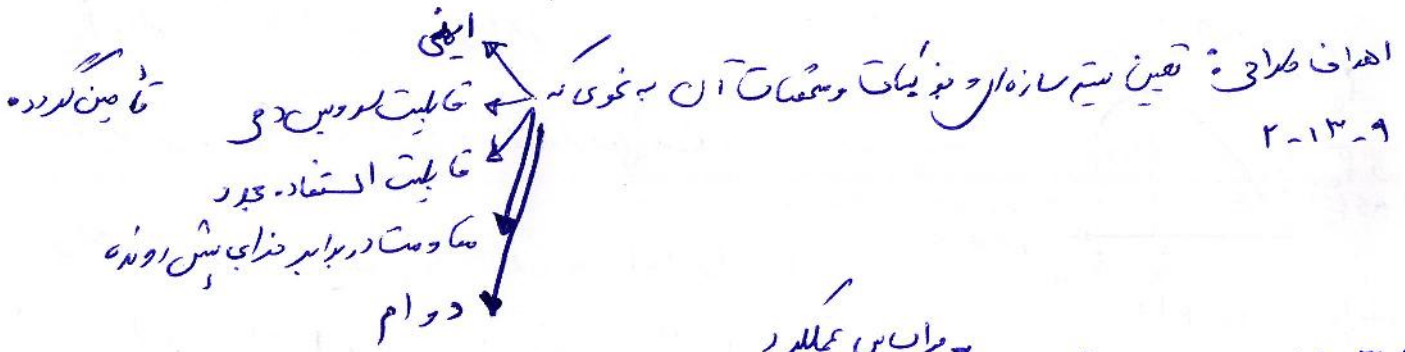 اهداف طراحی: تعیین سیستم سازه‌ای و جزئیات و مشخصات آن به نحوی که
ایمنی
قابلیت سرویس دهی
قابلیت استفاده مجدد
مقاومت در برابر خرابی پیش رونده
دوام
تأمین گردد.
۹-۱۳-۲
بر اساس عملکرد